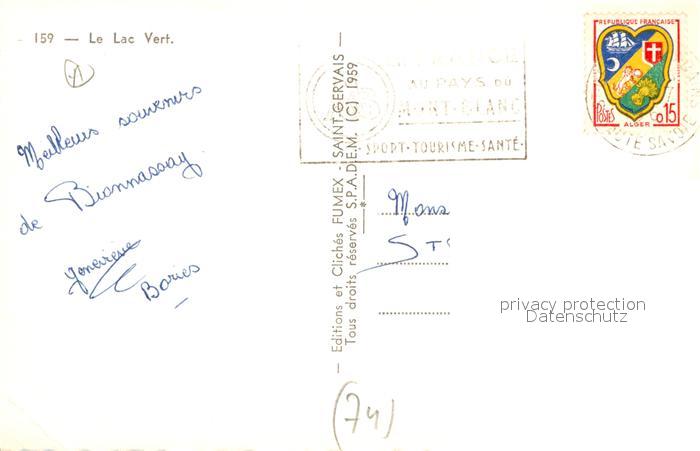 159 — Le Lac Vert.
Meilleurs souvenirs
de Bionnassay.
Geneviève
Bories
— Editions et Clichés FUMEX - SAINT-GERVAIS —
Tous droits réservés S.P.A.D.E.M. (C) 1959
*
AU PAYS DU
MONT-BLANC
SPORT·TOURISME·SANTÉ·
REPUBLIQUE FRANÇAISE
POSTES
0,15
ALGER
HAUTE SAVOIE
Mons
ST
privacy protection
Datenschutz
(74)